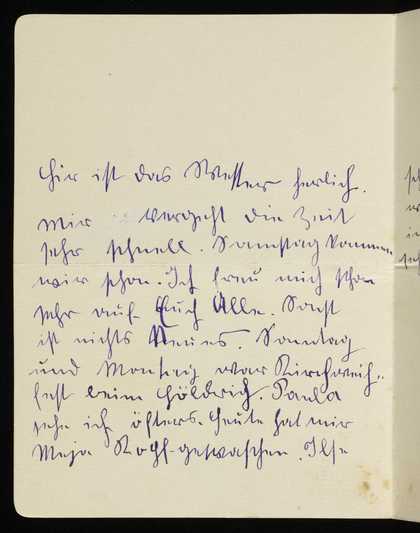 Hir ist das Wetter herlich.
Mir vergeht die Zeit
sehr schnell. Samstag kommen
wir schon. Ich freu mich schon
sehr auf Euch Alle. Sonst
ist nichts Neues. Sonntag
und Montag war Kirchweih-
fest beim Höldrich. Paula
sehe ich öfters. Heute hat mir
Meja Kopf-gewaschen. Ilse